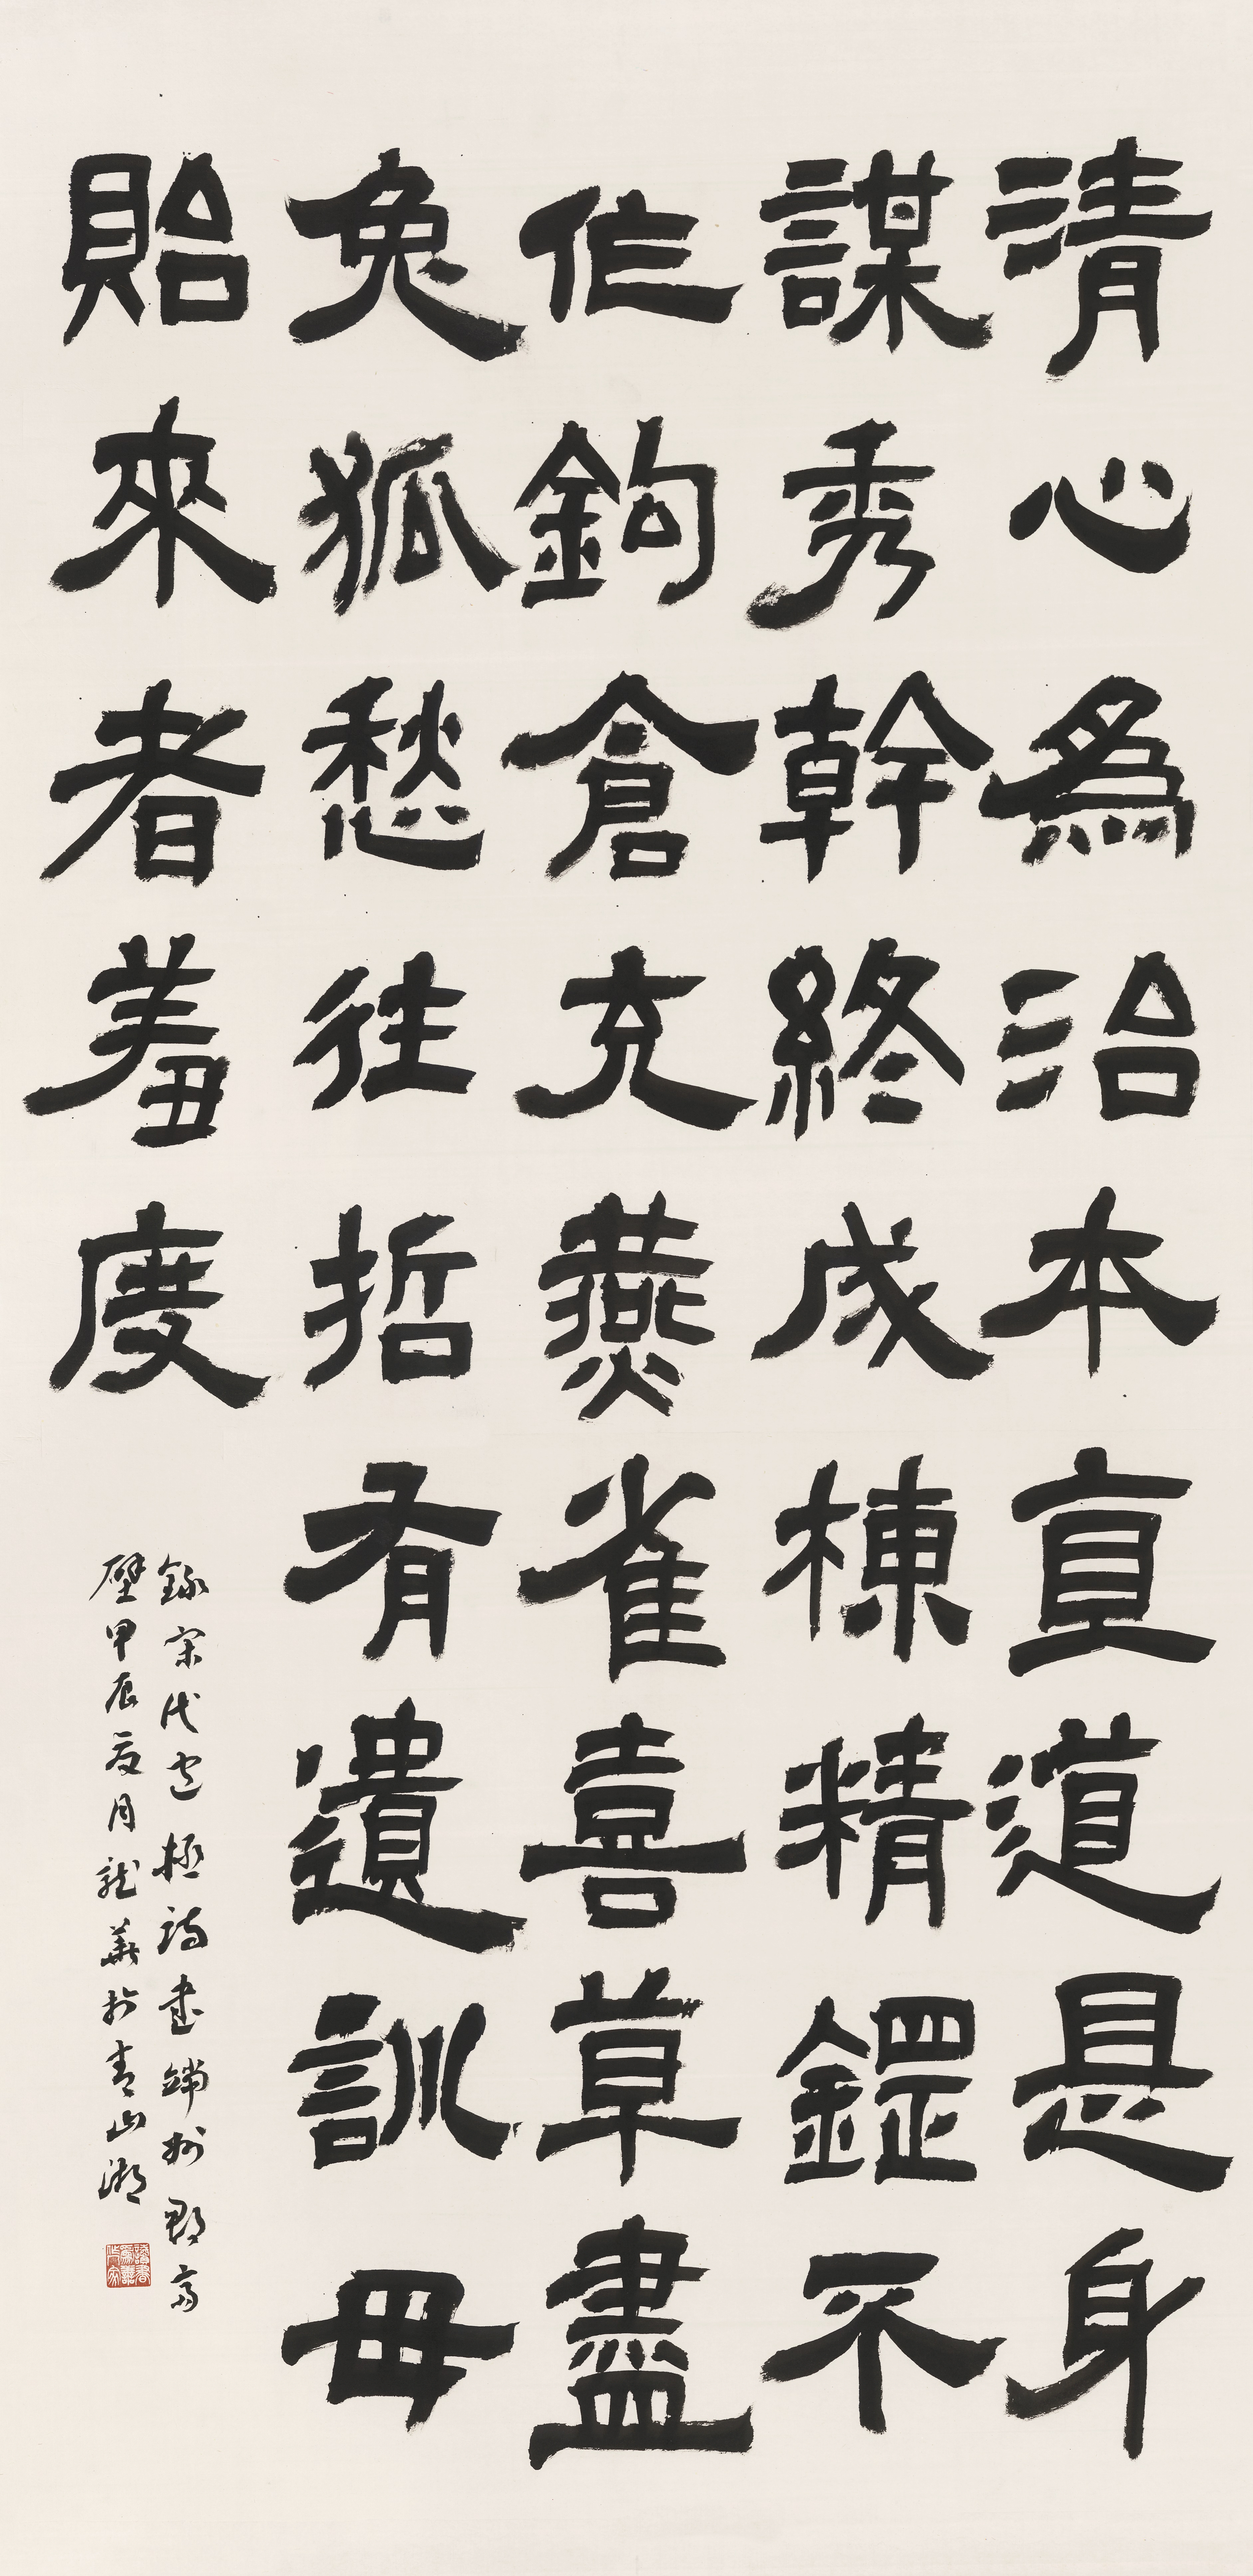 清心為治本直道是身
謀秀幹終成棟精鎠不
作鉤倉充燕雀喜草盡
兔狐愁往哲有遺訓毋
貽來者羞度
錄宋代包拯詩書端州郡齋
壁甲辰夏月龍華於青山湖